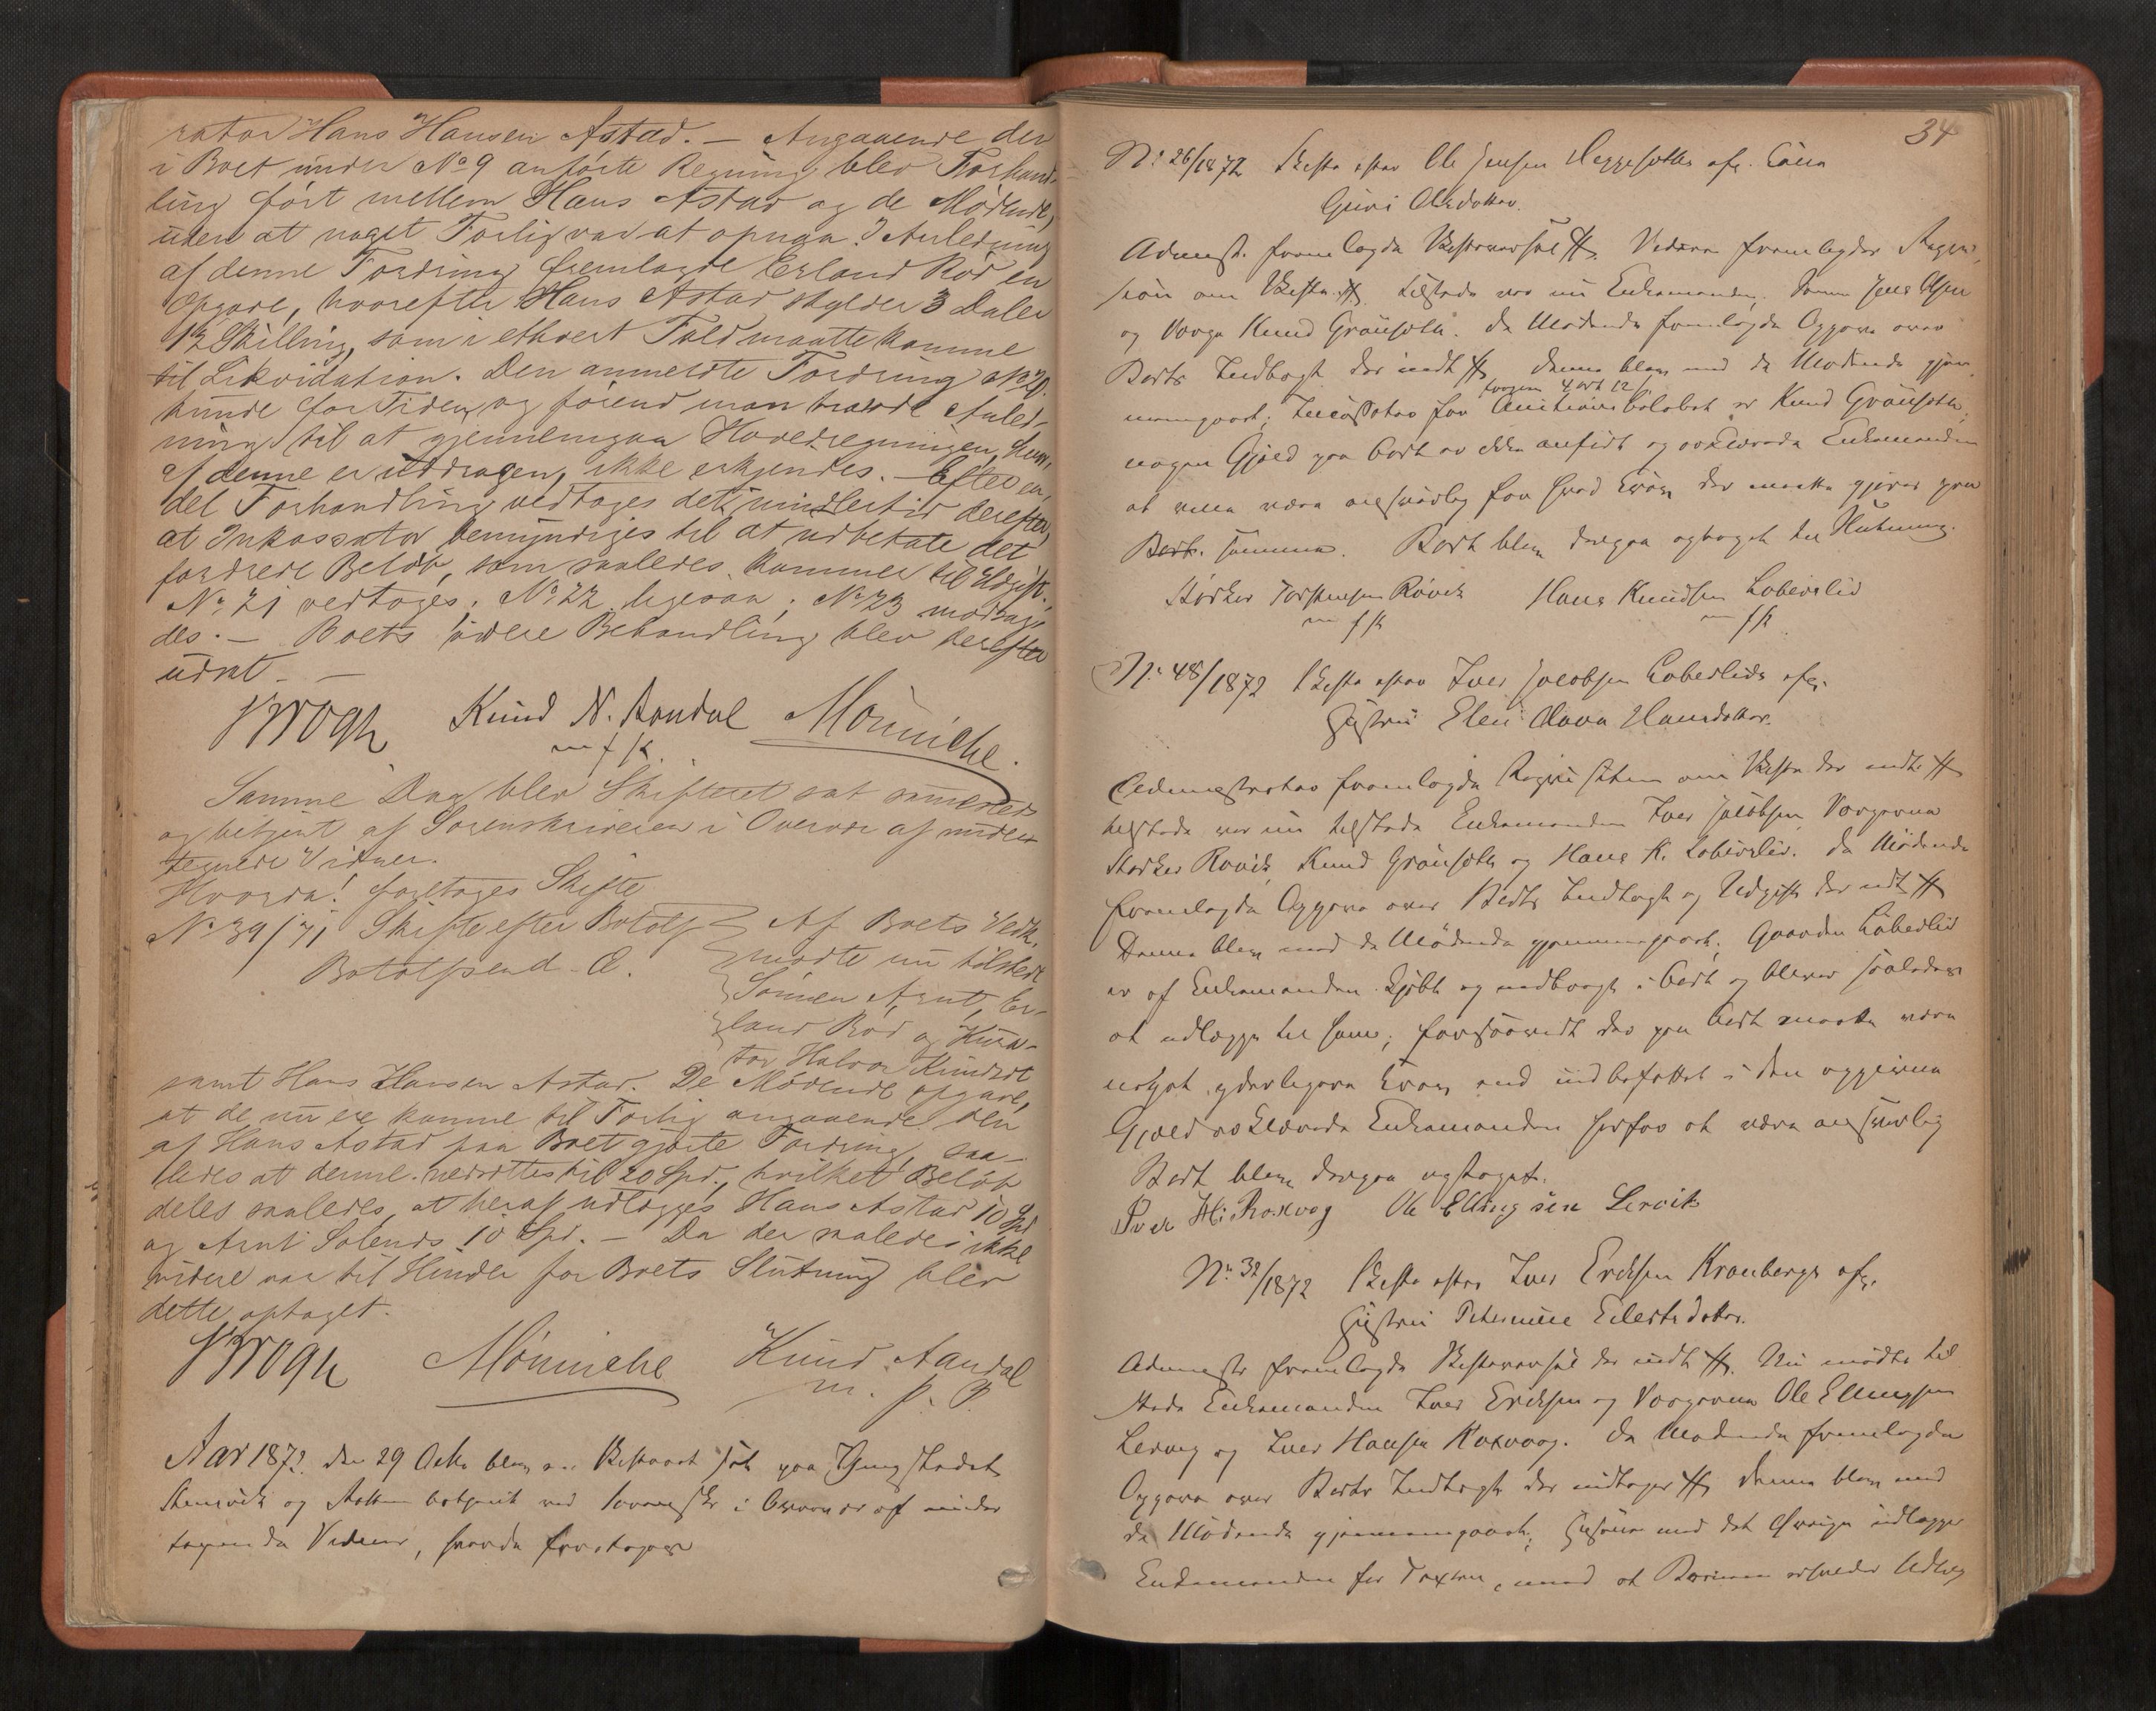 rator Hans Hansen Astad. – Angaaende den
i Boet under No 9 anførte Regning blev Forhand-
ling ført mellem Hans Astad og de Mødende,
uden at noget Forlig var at opnaa. I Anledning
af denne Fordring fremlagde Erland Rød en
Opgave, hvorefter Hans Astad skylder 3 Daler
12 Skilling, som i ethvert Fald maatte komme
til Likvidation. Den anmeldte Fordring No 20.
kunde for Tiden, og førend man havde Anled-
ning til at gjennemgaa Hovedregningen, hvor-
af denne er uddragen, ikke erkjendes. – Efter en
del Forhandling vedtoges det imidlertid derefter,
at Inkassator bemyndiges til at udbetale det
fordrede Beløb, som saaledes kommer til Udgift.
No 21 vedtoges; No 22 ligesaa; No 23 modsag-
des. – Boets videre Behandling blev derefter
udsat. –
Brogh Knud N. Aandal Mønniche.
m f P.
Samme Dag blev Skifteret sat sammesteds
og betjent af Sorenskriveren i Overvær af under-
tegnede Vidner.
Hvorda! foretoges Skifte
No 39/71 Skifte efter Botolf
Botolfsend. O.
Af Boets Vedk.
mødte nu tilstede
Sønnen Arnt, Er-
land Rød og Kura-
tor Halvor Knudset
samt Hans Hansen Astad. De Mødende opgave,
at de nu ere komne til Forlig angaaende den
af Hans Astad paa Boet gjorte Fordring, saa-
ledes at denne nedsættes til 20 Spd., hvilket Beløb
deles saaledes, at heraf udlægges Hans Astad 10 Spd
og Arnt Solends 10 Spd. – Da der saaledes ikke
videre var til Hinder for Boets Slutning blev
dette optaget.
Brogh Mønniche Knud Aandal
m. f. P.
Aar 1872 den 29 Octbr blev en Skifteret sat paa Thingstedet
og betjent ved Sorenskr i Overvær af under
tegnede Vidner, hvorda foretoges
34
No 26/1872 Skifte efter Ole Jensen afg. Kone
Guri Olsdatter.
Administr. fremlagde
om Skifte. Tilstede var nu Enkemanden, Sønnen Jens Olsen
og Værge Knud Grønseth. De Mødende fremlagde Opgave over
Boets Indtægt der indt. Denne blev med de Mødende gjen-
nemgaaet; Incassator for Auctionsbeløbet er Knud Grønseth;
nogen Gjæld paa Boet er ikke anført og erklærede Enkemanden
at ville være ansvarlig for hvad Krav der maatte gjøres paa
Boet. Boet blev derpaa optaget til Slutning.
Størker Torstensen Røvik Hans Knudsen Lobeslid
m f P m f P
No 48/1872 Skifte efter Iver Jacobsen Lobeslids afg.
Hustru Elen Olava Hansdatter.
Administrator fremlagde Reqvisition om Skifte der indt.
tilstede var nu tilstede Enkemanden Iver Jacobsen, Værgerne
Størker Røvik, Knud Grønseth og Hans K. Lobeslid. De Mødende
fremlagde Opgave over Boets Indtægt og Udgift der indt.
Denne blev med de Mødende gjennemgaaet; Gaarden Lobeslid
er af Enkemanden kjøbt og indbragt i Boet og bliver saaledes
at udlægge til ham; forsaavidt der paa Boet maatte være
noget yderligere Krav end indbefattet i den opgivne
Gjæld erklærede Enkemanden herfor at være ansvarlig
Boet blev derpaa optaget.
Iver H. Roxvog Ole Ellingsen Lervik
No 32/1872 Skifte efter Iver Eriksen Kranbergs afg.
Hustru Petermine Eilertsdatter.
Administr fremlagde der indt. Nu mødte til
stede Enkemanden Iver Eriksen og Værgerne Ole Ellingsen
Lervig og Iver Hansen Roxvaag. De Mødende fremlagde
Opgave over Boets Indtægt der indtages. Denne blev med
de Mødende gjennemgaaet; med det Øvrige udlægges
Enkemanden for Taxten, mod at Børnene erholder Udlæg